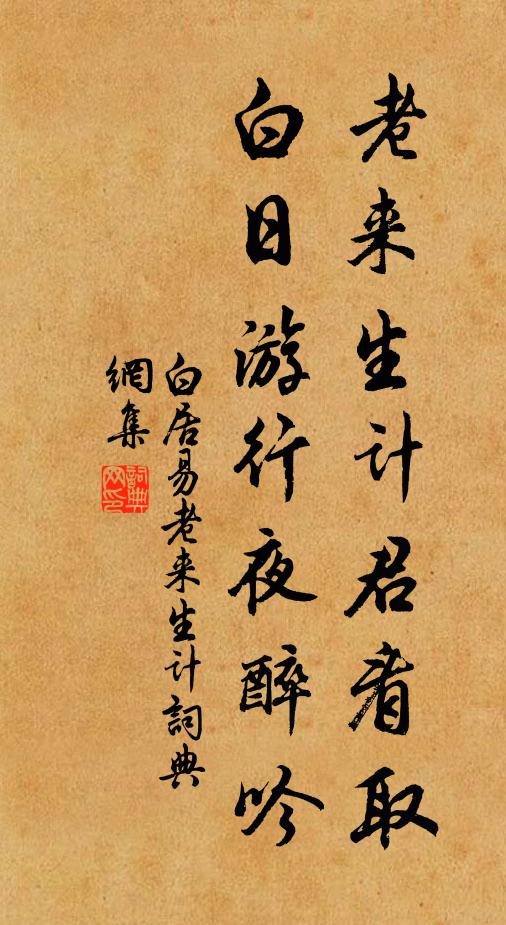 老来生计君看取
白日游行夜醉吟
白居易老来生计詞典
網集
詞典
网印